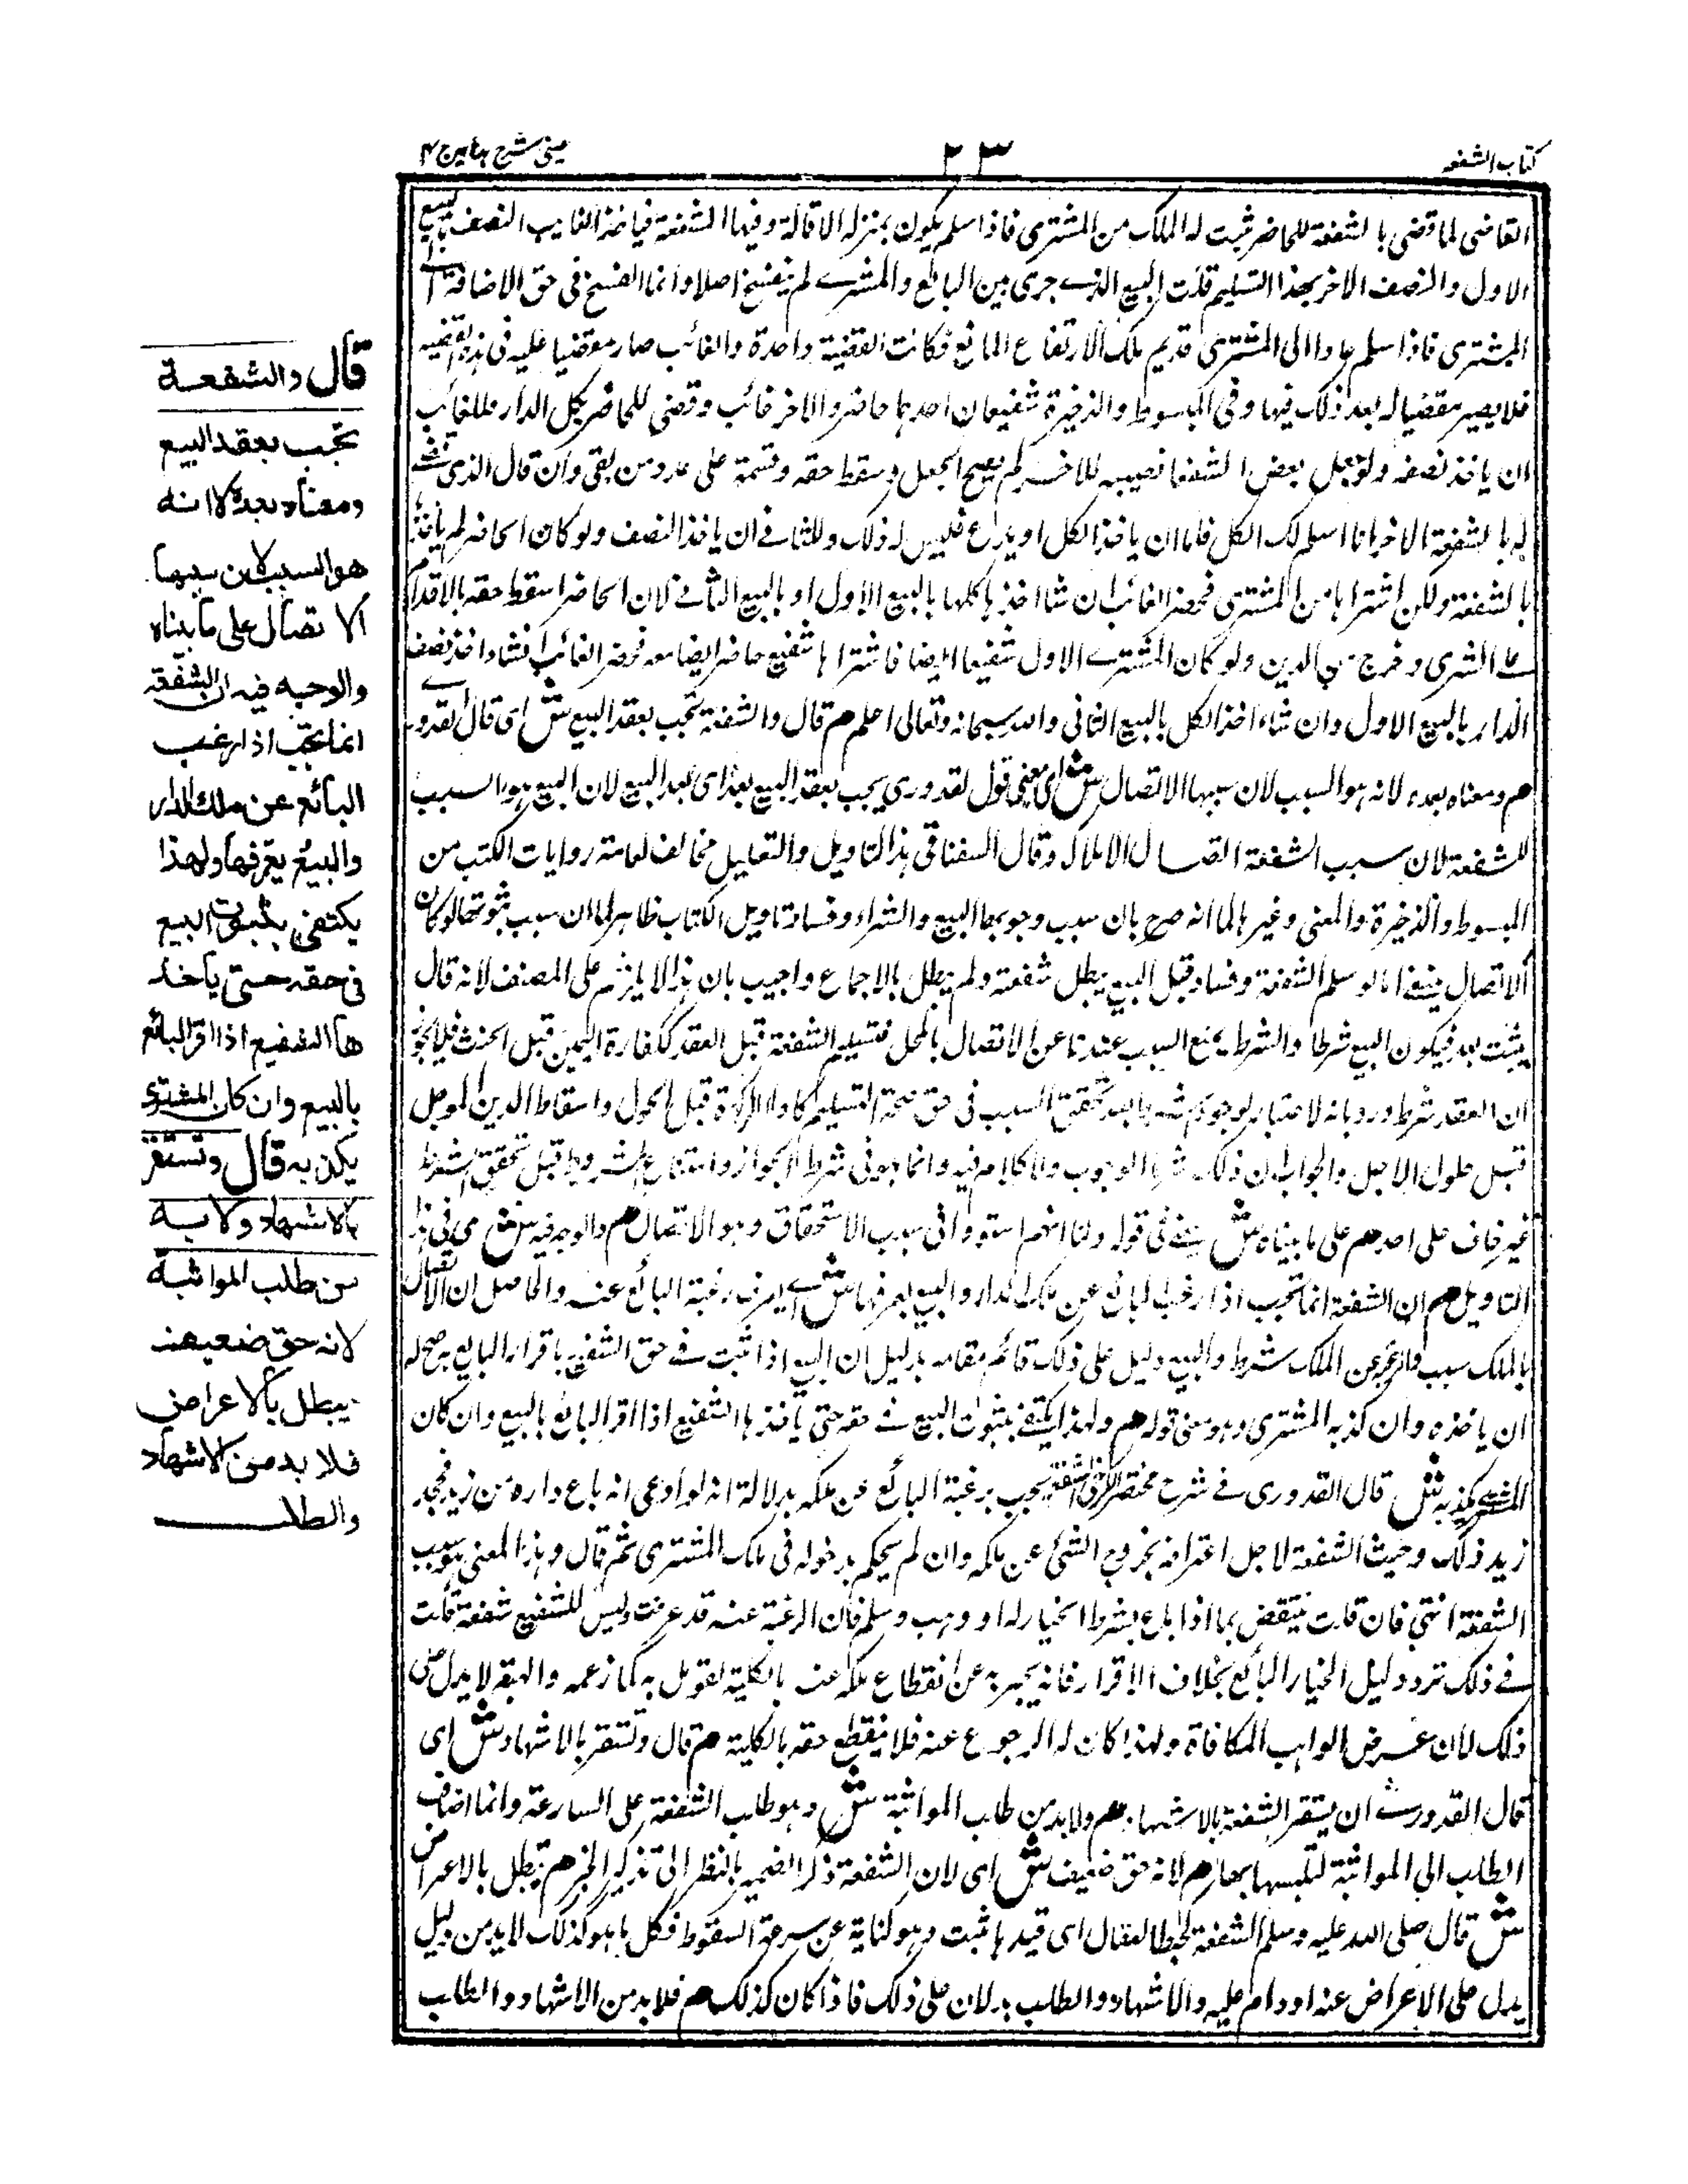 كتاب الشفعه
٢٣
عينى شرح هدايه ج ٤
القاضى لما قضى بالشفعة للحاضر ثبت له الملك من المشترى فاذا سلم يكون بمنزلة الاقالة وفيها الشفعة فياخذ الغايب النصف بالبيع
الاول والنصف الاخر بهذا التسليم قلت البيع الذے جرى بين البائع والمشترے لم ينفسخ اصلا وانما انفسخ فى حق الاضافة الے
المشترى فاذا سلم عاد الى المشترى قديم ملكه لارتفاع المانع فكانت القضية واحدة والغائب صار مقضيا عليه فى هذه القضيه
فلا يصير مقضيا له بعد ذلك فيها وفى المبسوط والذخيرة شفيعان احدهما حاضر والاخر غائب وقضى للحاضر بكل الدار فللغائب
ان ياخذ نصفه ولو جعل بعض الشفعا نصيبه للاخر لم يصح الجعل وسقط حقه وقسمة على عدد من بقى وان قال الذى قضے
له بالشفعة الاخر انا اسلم لك الكل فاما ان ياخذ الكل او يدع فليس له ذلك وللثانے ان ياخذ النصف ولو كان الحاضر لم ياخذ
بالشفعة ولكن اشتراها من المشترى فحضر الغائب ان شاء اخذها كلها بالبيع الاول او بالبيع الثانے لان الحاضر اسقط حقه بالاقدام
علے الشرى وخرج من البين ولو كان المشترے الاول شفيعا ايضا فاشتراها شفيع حاضر ايضا معه فحضر الغائب ان شاء اخذ نصف
الدار بالبيع الاول وان شاء اخذ الكل بالبيع الثانى والله سبحانه وتعالى اعلم هم قال والشفعة تجب بعقد البيع ش اى قال القدورے
هم ومعناه بعده لانه هو السبب لان سببها الاتصال ش اى معنى قول القدورى يجب بعقد البيع بعده اى بعد البيع لان البيع هو السبب
للشفعة لان سبب الشفعة اتصال الاملاك وقال السغناقى هذا التاويل والتعليل مخالف لعامة روايات الكتب من
المبسوط والذخيرة والمغنى وغيرها لما انه صرح بان سبب وجوبها البيع والشراء وفساد تاويل الكتاب ظاهر لما ان سبب ثبوتها لو كان
الاتصال ينبغى انه لو سلم الشفعة وفساد قبل البيع يبطل شفعة ولم يبطل بالاجماع واجيب بان هذا لا يلزم على المصنف لانه قال
يثبت بعده فيكون البيع شرطا والشرط يمنع السبب عندنا عن الاتصال بالمحل فتسليم الشفعة قبل العقد ككفارة اليمين قبل الحنث فلا يجوز
ان العقد شرط ورد بانه لا اعتبار لوجود شرط بعد تحقق السبب فى حق صحة التسليم كاداء الزكوة قبل الحول واسقاط الدين المؤجل
قبل حلول الاجل والجواب ان ذلك شرط الوجوب ولا كلام فيه وانما هو فى شرط الجواز وامتناع المشروط قبل تحقق الشرط
غير خاف على احد هم على ما بيناه ش ينبغى قوله ولنا انهم استووا فى سبب الاستحقاق وهو الاتصال هم والوجه فيه ش اى فى هذا
التاويل هم ان الشفعة انما تجب اذا رغب البائع عن ملك الدار والبيع يعرفها ش اے يعرف رغبة البائع عنه والحاصل ان الاتصال
بالملك سبب والرغبة عن الملك شرط والبيع دليل على ذلك قائم مقامه بدليل ان البيع اذا ثبت فے حق الشفيع باقرار البايع به صح له
ان ياخذه وان كذبه المشترى وهو معنى قوله هم ولهذا يكتفى بثبوت البيع فے حقه حتى ياخذها الشفيع اذا اقر البائع بالبيع وان كان
المشترى يكذبه ش قال القدورى فے شرح مختصر الكرخى الشفعة تجب برغبة البائع عن ملكه بدلالة انه لو ادعى انه باع داره من زيد فجحد
زيد ذلك وجبت الشفعة لاجل اعترافه بخروج الشئ عن ملكه وان لم يحكم بدخوله فى ملك المشترى ثم قال وهذا المعنى هو سبب
الشفعة انتهى فان قلت ينتقض بما اذا باع بشرط الخيار له او وهب وسلم فان الرغبة عنه قد عرفت وليس للشفيع شفعة قلت
فے ذلك تردد لبقاء الخيار البائع بخلاف الاقرار فانه يخبر به عن انقطاع ملكه عنه بالكلية لقوله به كما زعمه والهبة لا يدل على
ذلك لان غرض الواهب المكافاة ولهذا كان له الرجوع عنه فلا ينقطع حقه بالكلية هم قال وتستقر بالاشهاد ش اى
قال القدورے ان يستقر الشفعة بالاشهاد هم ولا بد من طلب المواثبة ش وهو طلب الشفعة على المسارعة وانما اضاف
الطلب الى المواثبة لتلبسها بها هم لانه حق ضعيف ش اى لان الشفعة ذكر الضمير بالنظر الى تذكير الخبر هم تبطل بالاعراض
ش قال صلى الله عليه وسلم الشفعة كحل العقال اى قيدها ثبت وهو كناية عن سرعة السقوط فكل ما هو كذلك لا بد من دليل
يدل على الاعراض عنه او دام عليه والاشهاد والطلب يدلان على ذلك فاذا كان كذلك هم فلا بد من الاشهاد والطلب
قال والشفعة
تجب بعقد البيع
ومعناه بعده لا انه
هو السبب لان سببها
الاتصال على ما بيناه
والوجه فيه ان الشفعة
انما تجب اذا رغب
البائع عن ملك الدار
والبيع يعرفها ولهذا
يكتفى بثبوت البيع
فى حقه حتى ياخذ
ها الشفيع اذا اقر البائع
بالبيع وان كان المشترى
يكذبه قال وتستقر
بالاشهاد ولا بد
من طلب المواثبة
لانه حق ضعيف
يبطل بالاعراض
فلا بد من الاشهاد
والطلب